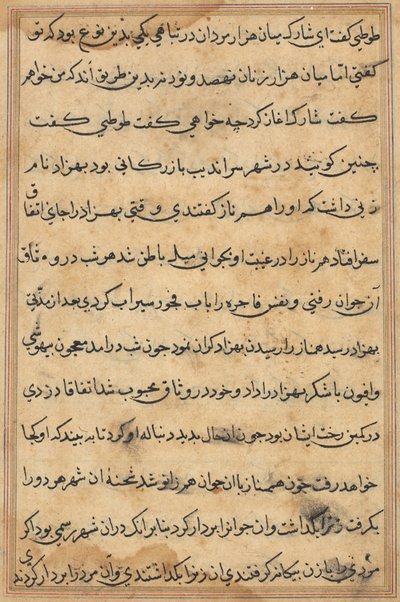 طوطی گفت ای شارک میان هزار مردان در تباهی یکی بدین نوع بود که تو
گفتی اما میان هزار زنان نهصد و نود نه بدین طریق اند که من خواهم
گفت شارک اغاز کرد چه خواهی گفت طوطی گفت
چنین گویند در شهر سراندیب بازرکانی بود بهزاد نام
زنی داشت که او را همناز گفتندی وقتی بهزاد را جای اتفاق
سفر افتاد همناز را در غیبت او بجوانی میله باطن شد هر شب در وثاق
آن جوان رفتی و نفس فاجره را باب فجور سیراب کردی بعد از مدتی
بهزاد رسید همناز را رسیدن بهزاد کران نمود جون شب درامد معجون بیهوشی
وافیون با شکر بهزاد را داد و خود در وثاق محبوب شد اتفاقا دزدی
در کمین رخت ایشان بود جون ان حال بدید دنباله او کرد تا به بیند که او کجا
خواهد رفت جون همناز با ان جوان همزانو شد شحنه ان شهر هر دو را
بکرفت زن را بکذاشت و ان جوان را بردار کرد بنابرانک دران شهر رسمی بود اکر
مردی را با زن بیکانه کرفتندی ان زن را بکذاشتندی و آن مرد را بردار کردندی